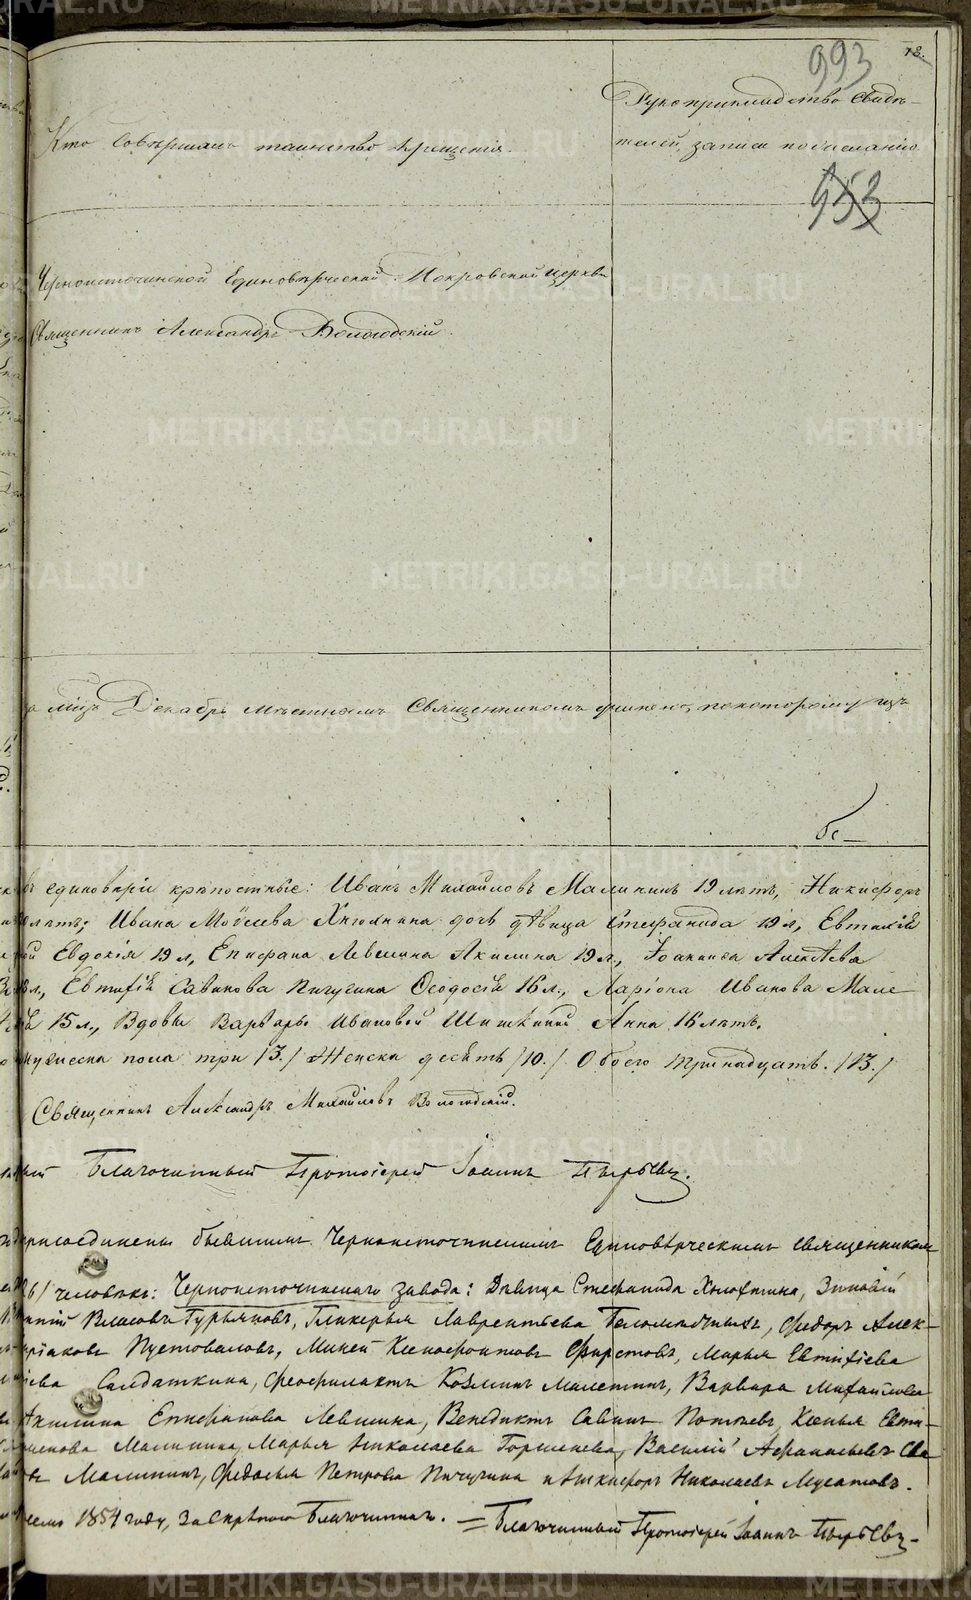 993
12.
Кто совершалъ таинство крещенія.
Рукоприкладство свидѣ-
телей, записи по желанію.
953
Черноисточинской Единовѣрческой Покровской церкви
Священникъ Александръ Вологодскій.
Декабрь мѣстнымъ Священникомъ по которому изъ
METRIKI.GASO-URAL.RU
единовѣріи крѣпостные: Иванъ Михайловъ Малининъ 19 лѣтъ, Никифоръ
лѣтъ; Ивана Моѵсеева Хнюнина дочь дѣвица Стефанида 19 л, Евтихій
Евдокія 19 л, Епифана Левшина Акилина 19 л., Іоаникиа Алексѣева
Евтихій Савинова Пичугина Ѳеодосій 16 л., Ларіона Иванова Мале
15 л., Вдовы Варвары Ивановой Шишкиной Анна 16 лѣтъ.
мужеска пола три /3./ Женска десять /10./ Обоего тринадцать. /13./
Священникъ Александръ Михайловъ Вологодскій.
Благочинный Протоіерей Іоаннъ Пырьевъ.
присоединены бывшимъ Черноисточинскимъ Единовѣрческимъ священникомъ
человѣкъ: Черноисточинскаго завода: Дѣвица Стефанида Хнюнина, Зиновій
Власовъ Гурьяновъ, Гликерья Лаврентьева Федоръ Алек-
Пустоваловъ, Миней Ксенофонтовъ Фирстовъ, Марья Евтихіева
Салдаткина, Феофилактъ Козминъ Малетинъ, Варвара Михайлова
Акилина Епифанова Левшина, Венедиктъ Савинъ Ксенья Евти-
Малинина, Марья Николаева Горшенева, Василій Афанасьевъ Сав
Малининъ, Федосья Петрова Пичугина и Никифоръ Николаевъ Мусатовъ.
1854 году, за скрѣпою Благочиннаго. = Благочинный Протоіерей Іоаннъ Пырьевъ.